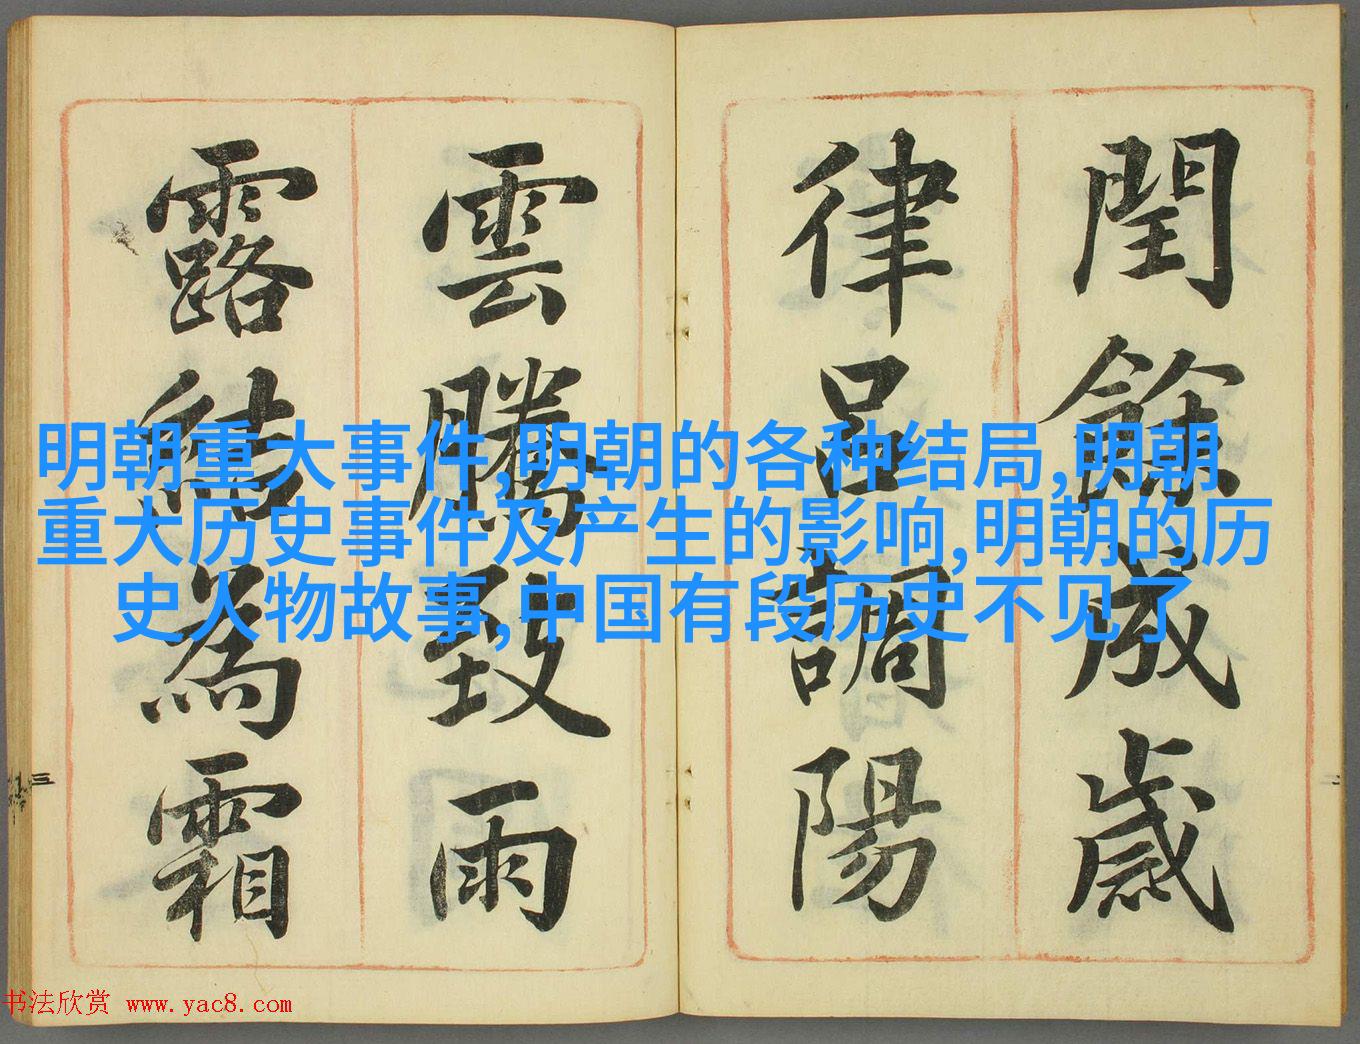 閏餘成歲
律呂調陽
雲騰致雨
露結為霜
明朝重大事件,明朝的各种结局,明朝
重大历史事件及产生的影响,明朝的历
史人物故事,中国有段历史不见了
三
二
书法欣赏 www.yac8.com